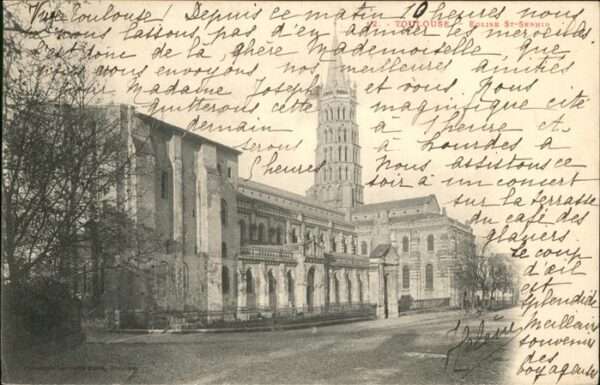 Vue Toulouse Depuis ce matin 10 heures nous
TOULOUSE. — Eglise St-Sernin
nous lassons pas d'en admirer les merveilles
C'est donc de là, chère Mademoiselle, que
nous vous envoyons nos meilleures amitiés
pour Madame Joseph et vous. Nous
quitterons cette magnifique cité
demain à heure et
serons à Lourdes à
heures Nous assistons ce
soir à un concert
sur la terrasse
du café des
glaciers.
Le coup
d'œil
est
splendide
Meilleurs
souvenirs
des
voyageuses